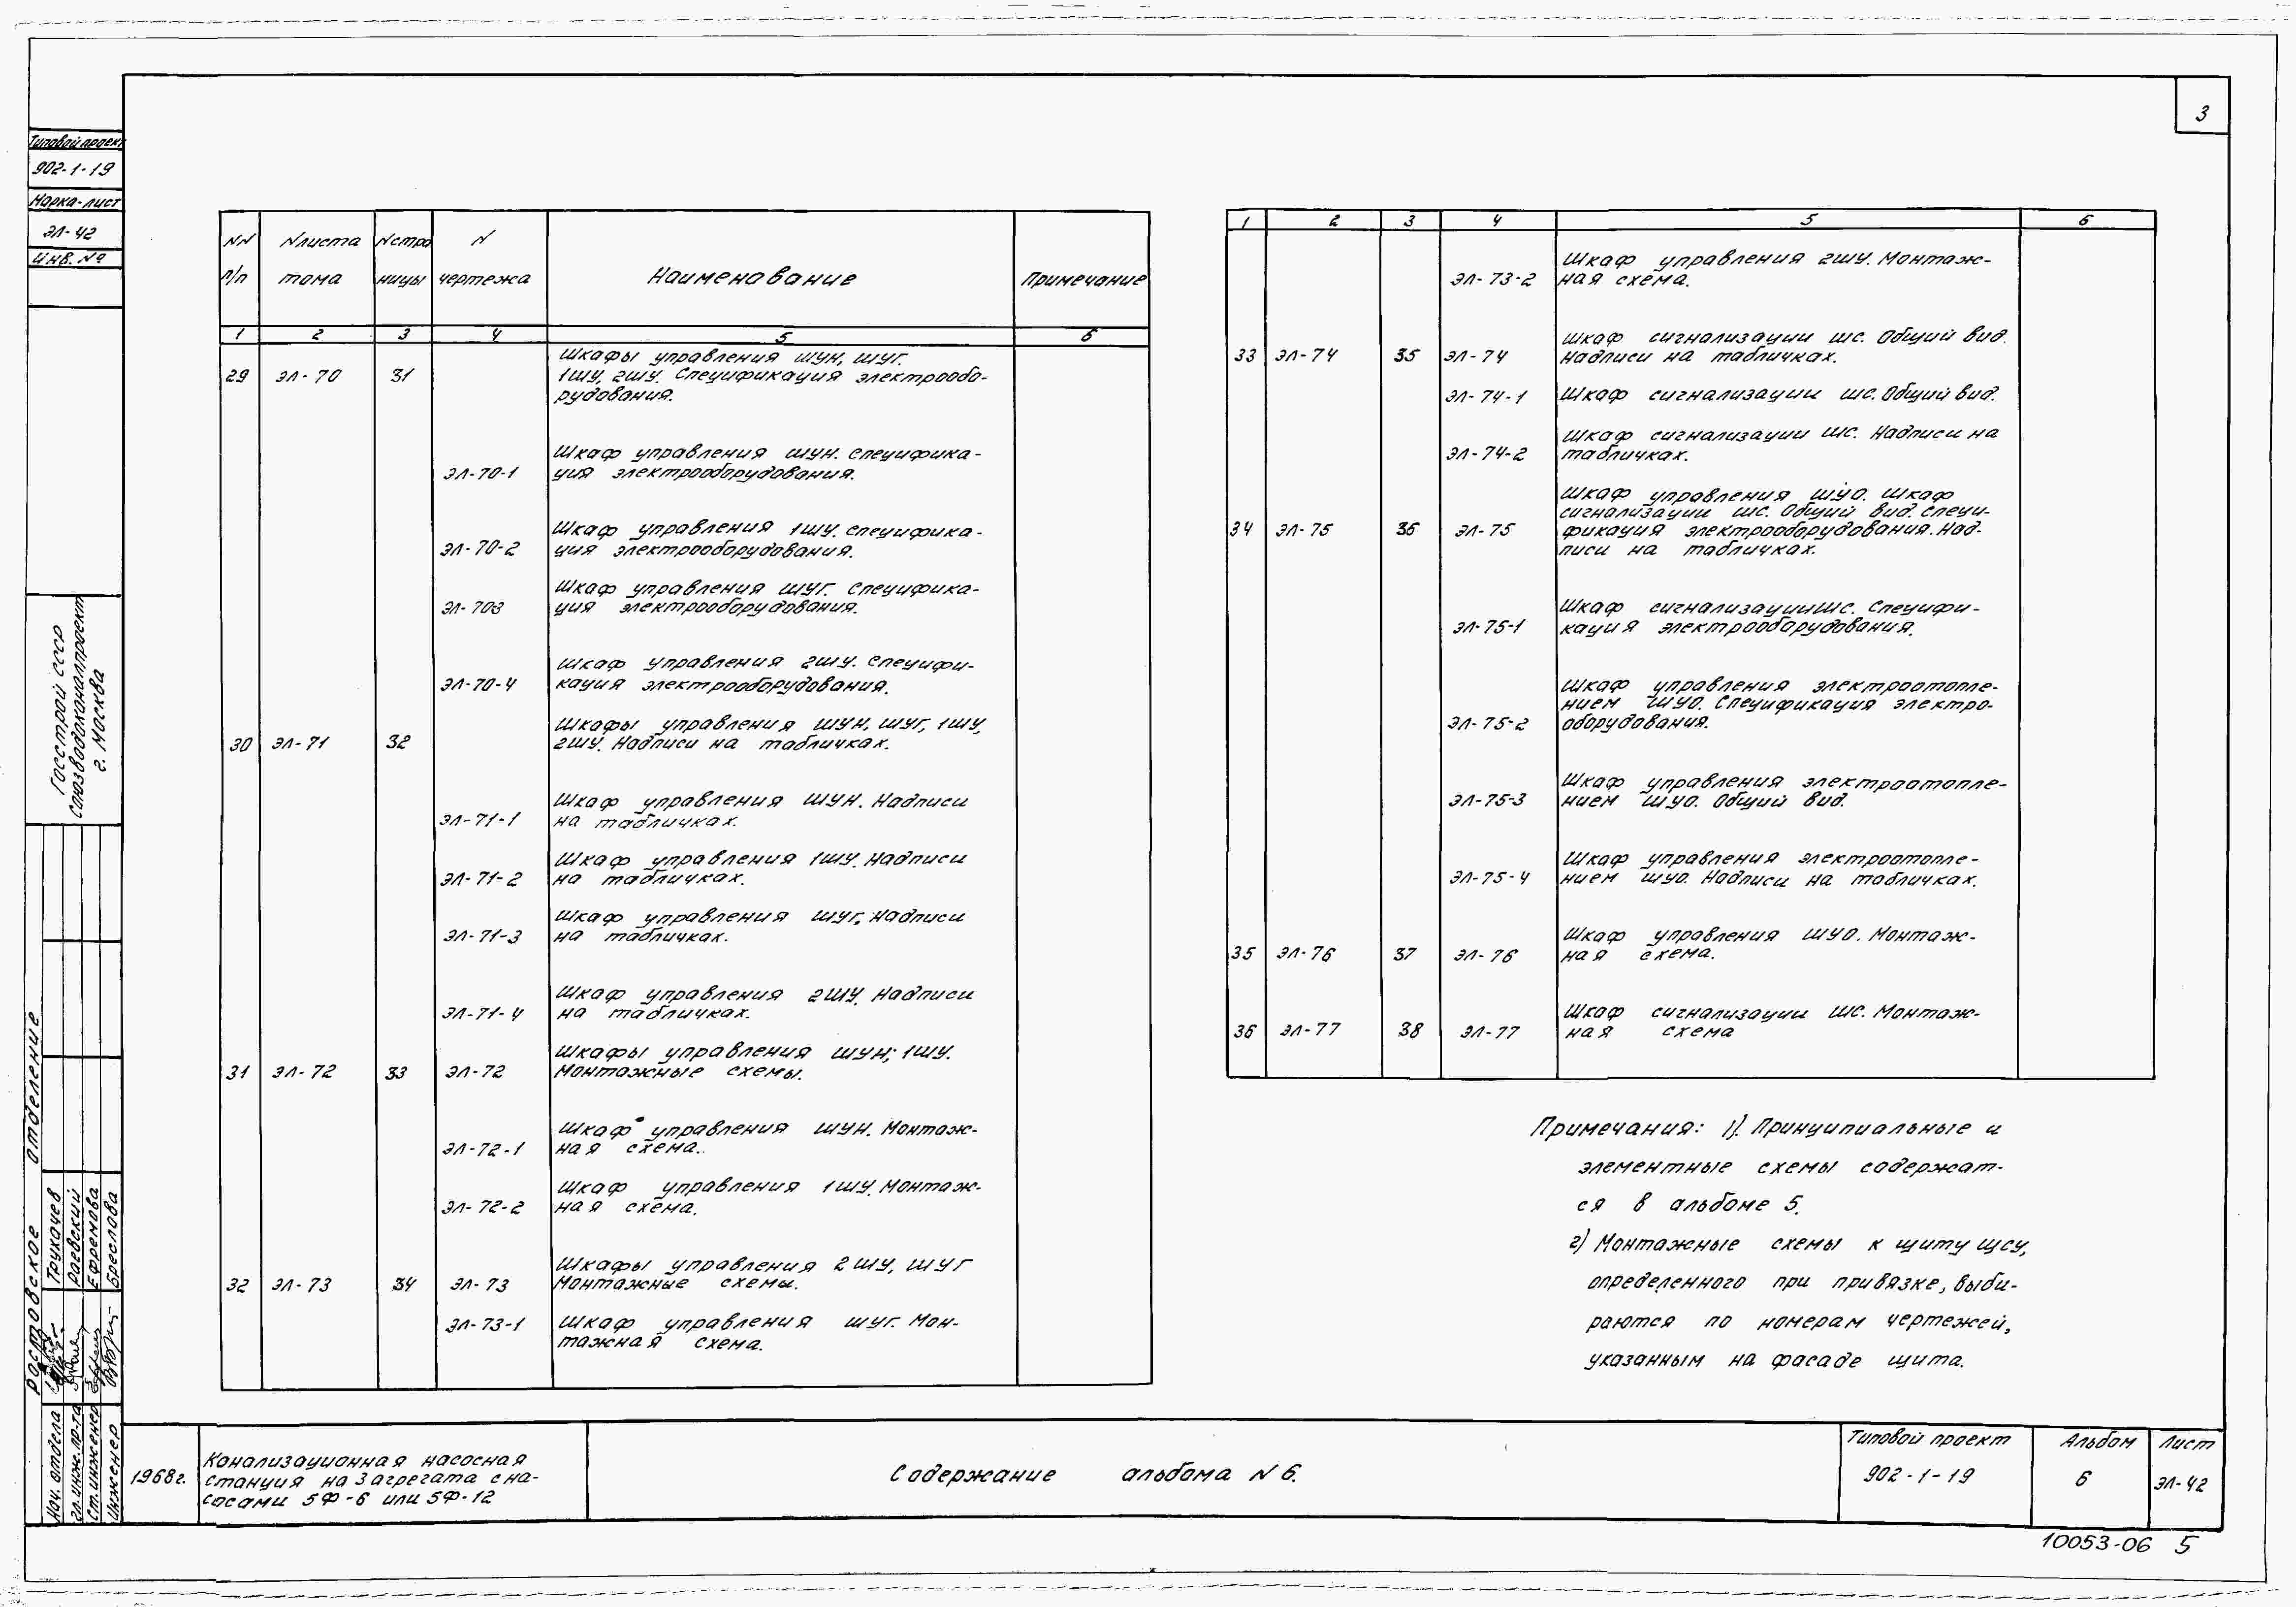 3
Типовой проект
902-1-19
Марка-лист
ЭЛ-42
Инв. №
Госстрой СССР
Союзводоканалпроект
г. Москва
Ростовское отделение
Нач. отдела Трукачев
Гл. инж. пр-та Раевский
Ст. инженер Ефремова
Инженер Бреслова
NN п/п
N листа тома
N страницы
N чертежа
Наименование
Примечание
1 2 3 4 5 6
Шкафы управления ШУН, ШУГ.
29 ЭЛ-70 31 1ШУ, 2ШУ. Спецификация электрообо-
рудования.
Шкаф управления ШУН. Специфика-
ЭЛ-70-1 ция электрооборудования.
Шкаф управления 1ШУ. Специфика-
ЭЛ-70-2 ция электрооборудования.
Шкаф управления ШУГ. Специфика-
ЭЛ-703 ция электрооборудования.
Шкаф управления 2ШУ. Специфи-
ЭЛ-70-4 кация электрооборудования.
Шкафы управления ШУН, ШУГ, 1ШУ,
30 ЭЛ-71 32 2ШУ. Надписи на табличках.
Шкаф управления ШУН. Надписи
ЭЛ-71-1 на табличках.
Шкаф управления 1ШУ. Надписи
ЭЛ-71-2 на табличках.
Шкаф управления ШУГ, Надписи
ЭЛ-71-3 на табличках.
Шкаф управления 2ШУ. Надписи
ЭЛ-71-4 на табличках.
Шкафы управления ШУН; 1ШУ.
31 ЭЛ-72 33 ЭЛ-72 Монтажные схемы.
Шкаф управления ШУН. Монтаж-
ЭЛ-72-1 ная схема.
Шкаф управления 1ШУ. Монтаж-
ЭЛ-72-2 ная схема.
Шкафы управления 2ШУ, ШУГ
32 ЭЛ-73 34 ЭЛ-73 Монтажные схемы.
ЭЛ-73-1 Шкаф управления ШУГ. Мон-
тажная схема.
1 2 3 4 5 6
Шкаф управления 2ШУ. Монтаж-
ЭЛ-73-2 ная схема.
Шкаф сигнализации ШС. Общий вид.
33 ЭЛ-74 35 ЭЛ-74 Надписи на табличках.
ЭЛ-74-1 Шкаф сигнализации ШС. Общий вид.
Шкаф сигнализации ШС. Надписи на
ЭЛ-74-2 табличках.
Шкаф управления ШУО. Шкаф
сигнализации ШС. Общий вид. Специ-
34 ЭЛ-75 36 ЭЛ-75 фикация электрооборудования. Над-
писи на табличках.
Шкаф сигнализации ШС. Специфи-
ЭЛ-75-1 кация электрооборудования.
Шкаф управления электроотопле-
нием ШУО. Спецификация электро-
ЭЛ-75-2 оборудования.
Шкаф управления электроотопле-
ЭЛ-75-3 нием ШУО. Общий вид.
Шкаф управления электроотопле-
ЭЛ-75-4 нием ШУО. Надписи на табличках.
Шкаф управления ШУО. Монтаж-
35 ЭЛ-76 37 ЭЛ-76 ная схема.
Шкаф сигнализации ШС. Монтаж-
36 ЭЛ-77 38 ЭЛ-77 ная схема
Примечания: 1). Принципиальные и
элементные схемы содержат-
ся в альбоме 5.
2) Монтажные схемы к щиту ЩСУ,
определенного при привязке, выби-
раются по номерам чертежей,
указанным на фасаде щита.
1968г.
Канализационная насосная
станция на 3 агрегата с на-
сосами 5Ф-6 или 5Ф-12
Содержание альбома N 6.
Типовой проект
902-1-19
Альбом
6
Лист
ЭЛ-42
10053-06 5